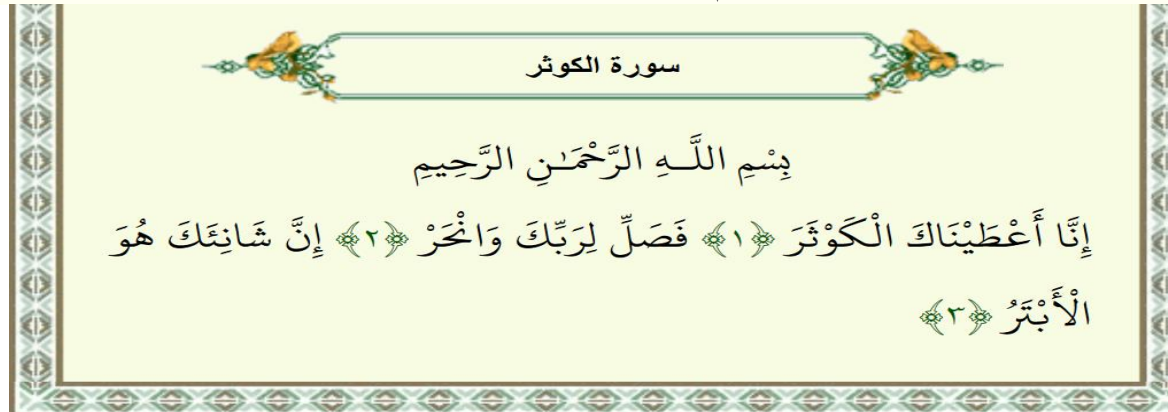 سورة الكوثر
بِسْمِ اللَّـهِ الرَّحْمَـٰنِ الرَّحِيمِ
إِنَّا أَعْطَيْنَاكَ الْكَوْثَرَ ﴿١﴾ فَصَلِّ لِرَبِّكَ وَانْحَرْ ﴿٢﴾ إِنَّ شَانِئَكَ هُوَ
الْأَبْتَرُ ﴿٣﴾